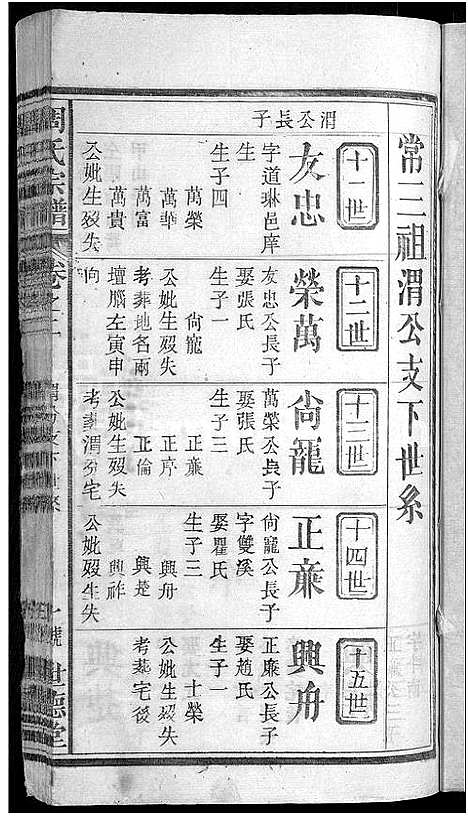 常三祖渭公支下世系
十一世
渭公長子
友忠
字道琳邑庠
生
生子四
萬榮
萬華
萬富
萬貴
公妣生歿失
十二世
榮萬
友忠公長子
娶張氏
生子一
尙寵
公妣生歿失
考葬地名兩
壇腦左寅申
向
十三世
尙寵
萬榮公長子
娶張氏
生子三
正亷
正序
正倫
公妣生歿失
考葬渭公宅
十四世
正亷
尙寵公長子
字雙溪
娶瞿氏
生子三
興舟
興楚
興祚
公妣歿生失
十五世
興舟
正廉公長子
娶趙氏
生子一
士榮
公妣生歿失
考葬宅後
周氏宗譜
卷之二
世德堂